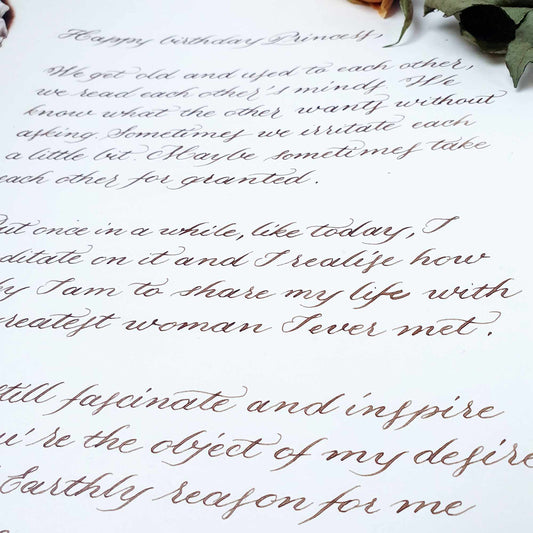 Happy birthday Princess,
We get old and used to each other,
we read each other's minds. We
know what the other wants without
asking. Sometimes we irritate each
a little bit. Maybe sometimes take
each other for granted.
But once in a while, like today, I
ditate on it and I realise how
ky I am to share my life with
greatest woman I ever met.
still fascinate and inspire
u're the object of my desire
Earthly reason for me